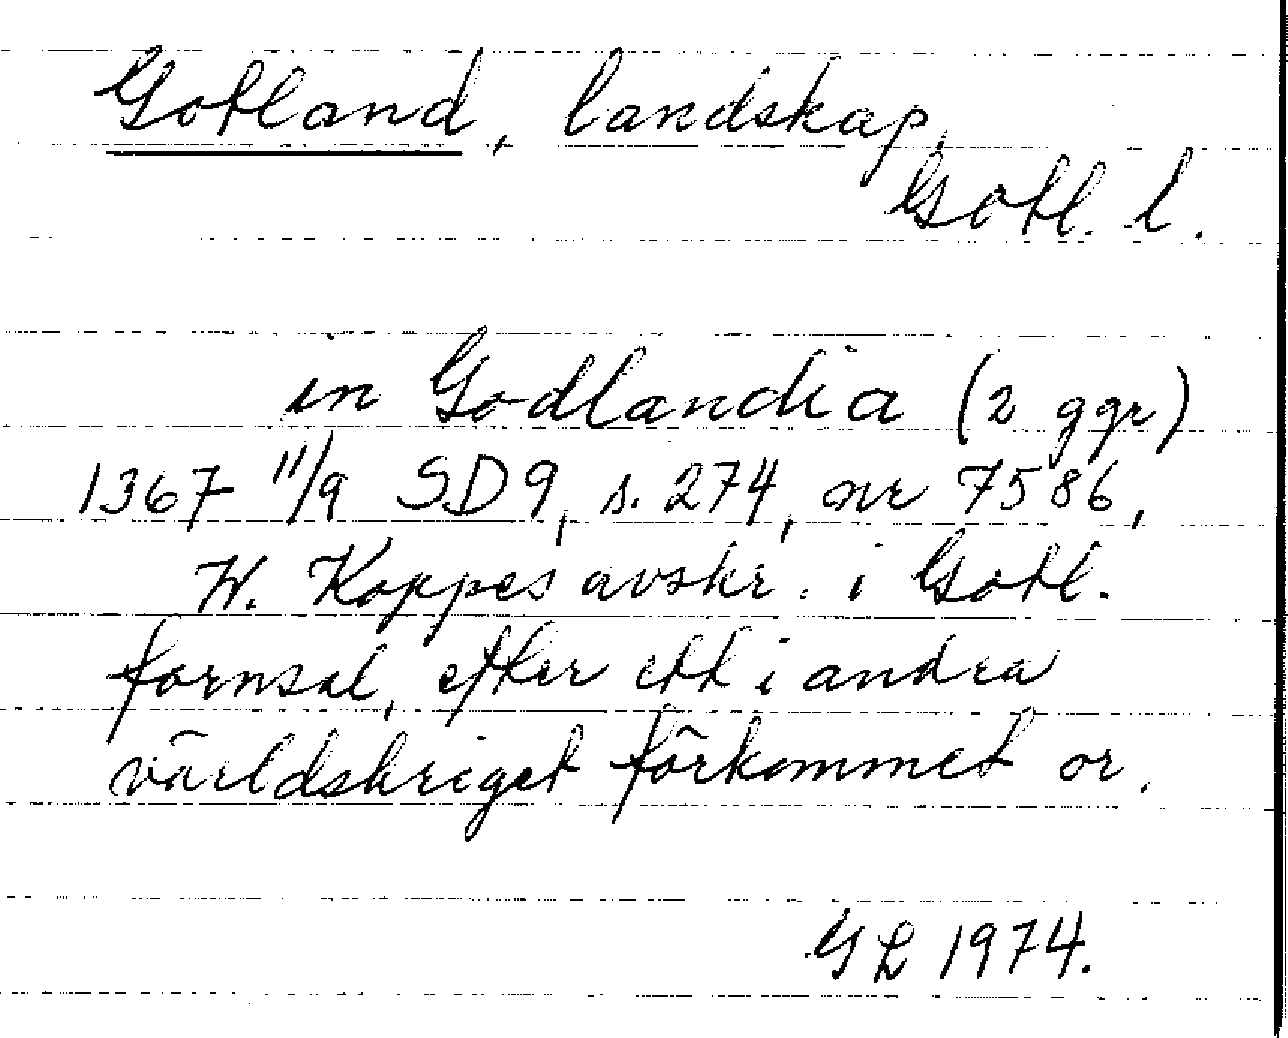 Gotland, landskap,
Gotl. l.
in Godlandia (2 ggr)
1367 11/9 SD9, s. 274, nr 7586,
W. Koppes avskr. i Gotl.
fornsal, efter ett i andra
världskriget förkommet or.
GL 1974.